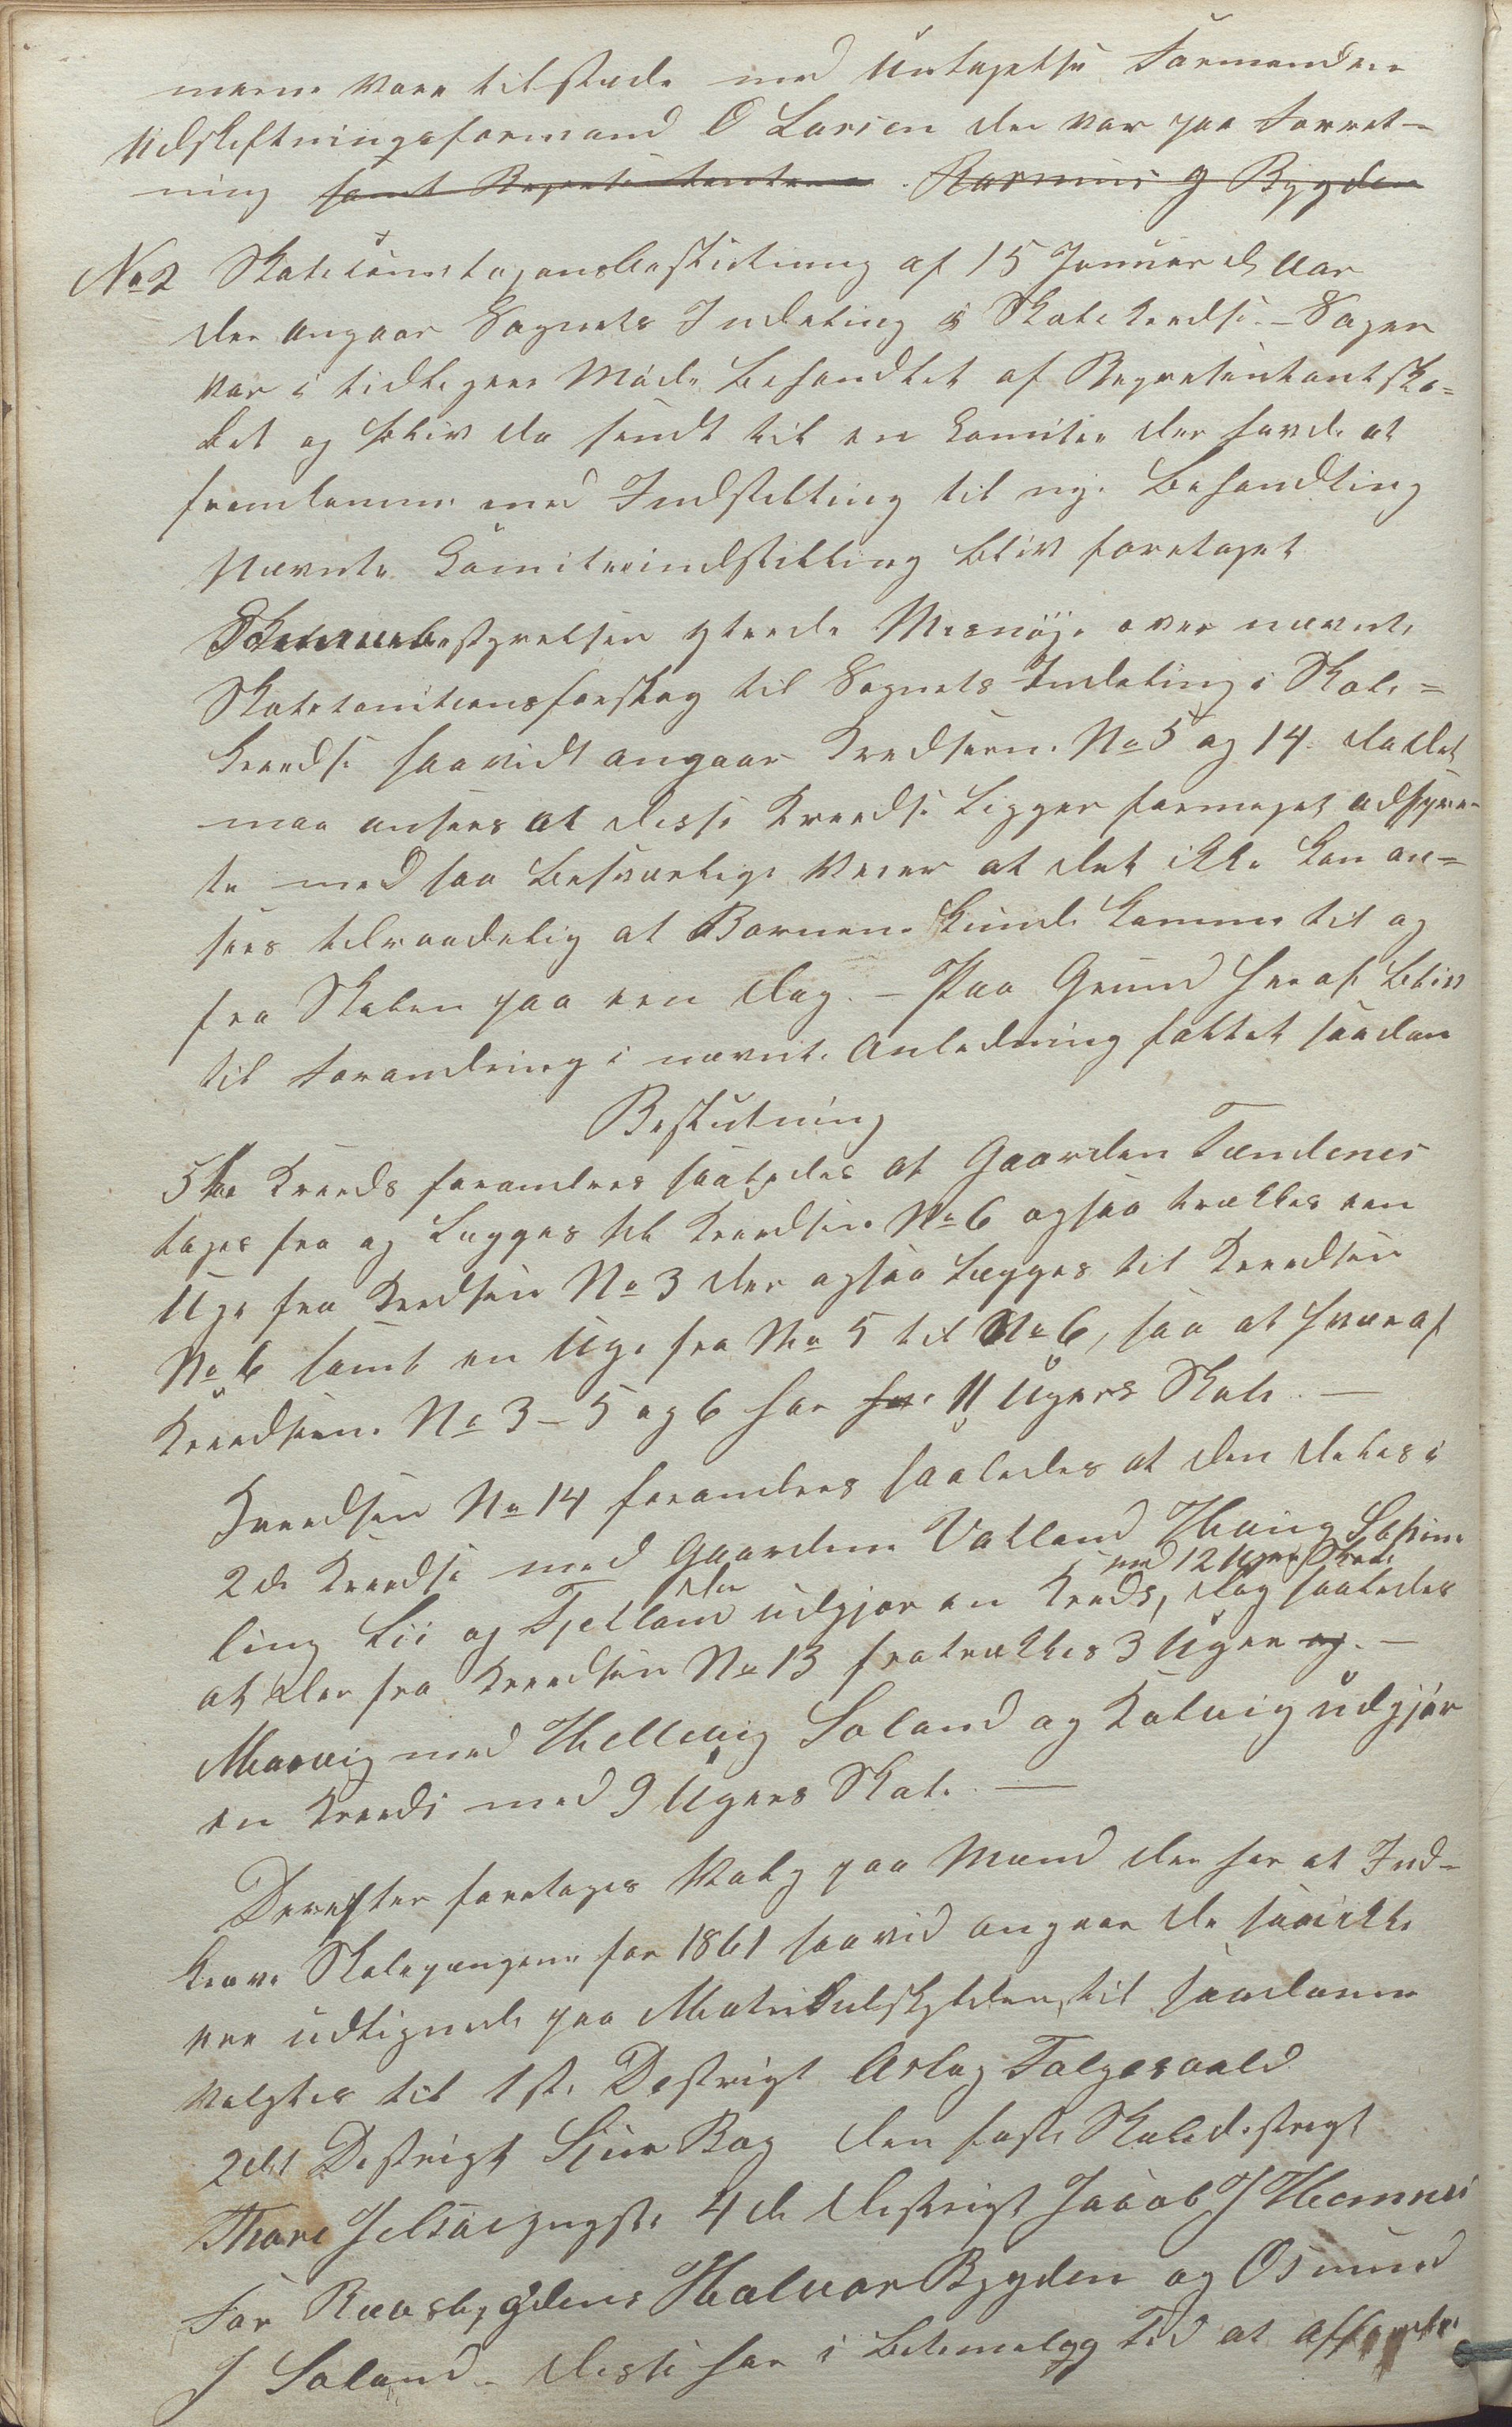 merne vare tilstæde med Untagelse Formanden
Udskiftningsformand O Larsen der var paa Forret-
ning samt Representanterne Rasmus J Bygden
No 2 Skolecommisjonsbeslutning af 15 Januar d. Aar
der angaar Sognets Indeling i Skolekredse. - Sagen
var i tidligere Møde behandlet af Representantska-
bet og blev da sendt til en Comitee der havde at
fremkomme med Indstilling til nye Behandling
Nævnte Comiteeindstilling blev foretaget
bestyrelsen yterede Misnöye over nævnte
Skolecomitionsforslag til Sognets Indeling i Skole=
kredse saavidt angaar Kredserne No 5 og 14. da det
maa ansees at disse Kredse ligger formeget adspre-
te med saa besværlige Veier at det ikke kan an=
sees tilraadelig at Børnene kunde komme til og
fra Skolen paa een Dag. - Paa Grund heraf blev
til Forandring i nævnte Anledning fattet saadan
Beslutning
5te Kreds forandres saaledes at Gaarden Tændenes
tages fra og legges til Kredsen No 6 ogsaa trækkes een
Uge fra Kredsen No 3 der ogsaa lægges til Kredsen
No 6 samt en Uge fra No 5 til No 6, saa at hver af
Kredserne No 3 - 5 og 6 har 11 Ugers Skole. -
Kredsen No 14 forandres saaledes at den deles i
2de Kredse med Gaardene Vatland Hauig
med 12 Ugers Skole
ling Lii og Fjelland der udgjør en Kreds, dog saaledes
at der fra Kredsen No 13 fratrækkes 3 Uger og. -
Marvig med Hellevig Soland og Kalvig udgjør
en Kreds med 9 Ugers Skole. -
Derefter foretages Valg paa Mænd der har at Ind-
kræve Skolepengene for 1861 saavid angaar de som ikke
ere udlignede paa Matrikulskylden, til saadanne
valgtes til 1ste Destrigt Aslag Talgesvold
2det Destrigt Sjur Bag den faste Skoledistrigt
Thore 4de Destrigt Jacob J Hemnes
For Rævsbygdens Halvor Bygden og Osmund
J Soland. - Disse har i betimelyg Tid at